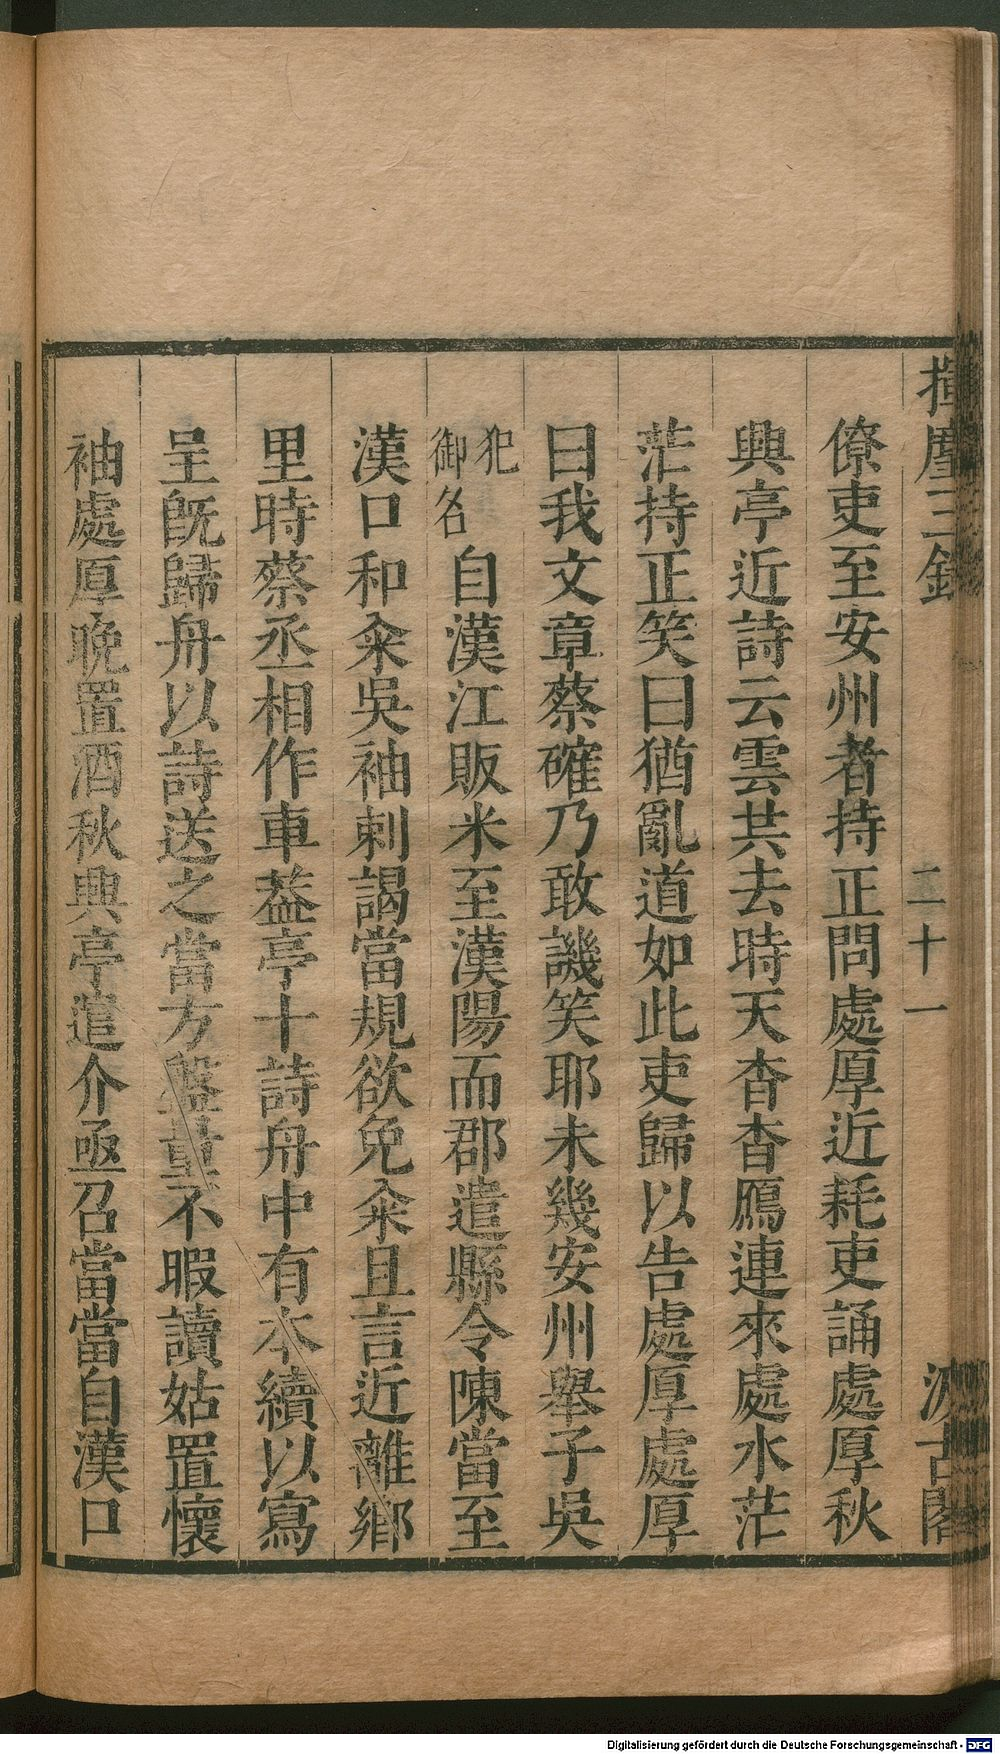 揮麈三錄
二十一
汲古閣
僚吏至安州者持正問處厚近耗吏誦處厚秋
興亭近詩云雲共去時天杳杳鴈連來處水茫
茫持正笑曰猶亂道如此吏歸以告處厚處厚
曰我文章蔡確乃敢譏笑耶未幾安州舉子吳
犯御名自漢江販米至漢陽而郡遣縣令陳當至
漢口和籴吳袖刺謁當規欲免籴且言近離鄉
里時蔡丞相作車葢亭十詩舟中有本續以寫
呈旣歸舟以詩送之當方盤量不暇讀姑置懷
袖處厚晚置酒秋興亭遣介亟召當當自漢口
Digitalisierung gefördert durch die Deutsche Forschungsgemeinschaft - DFG